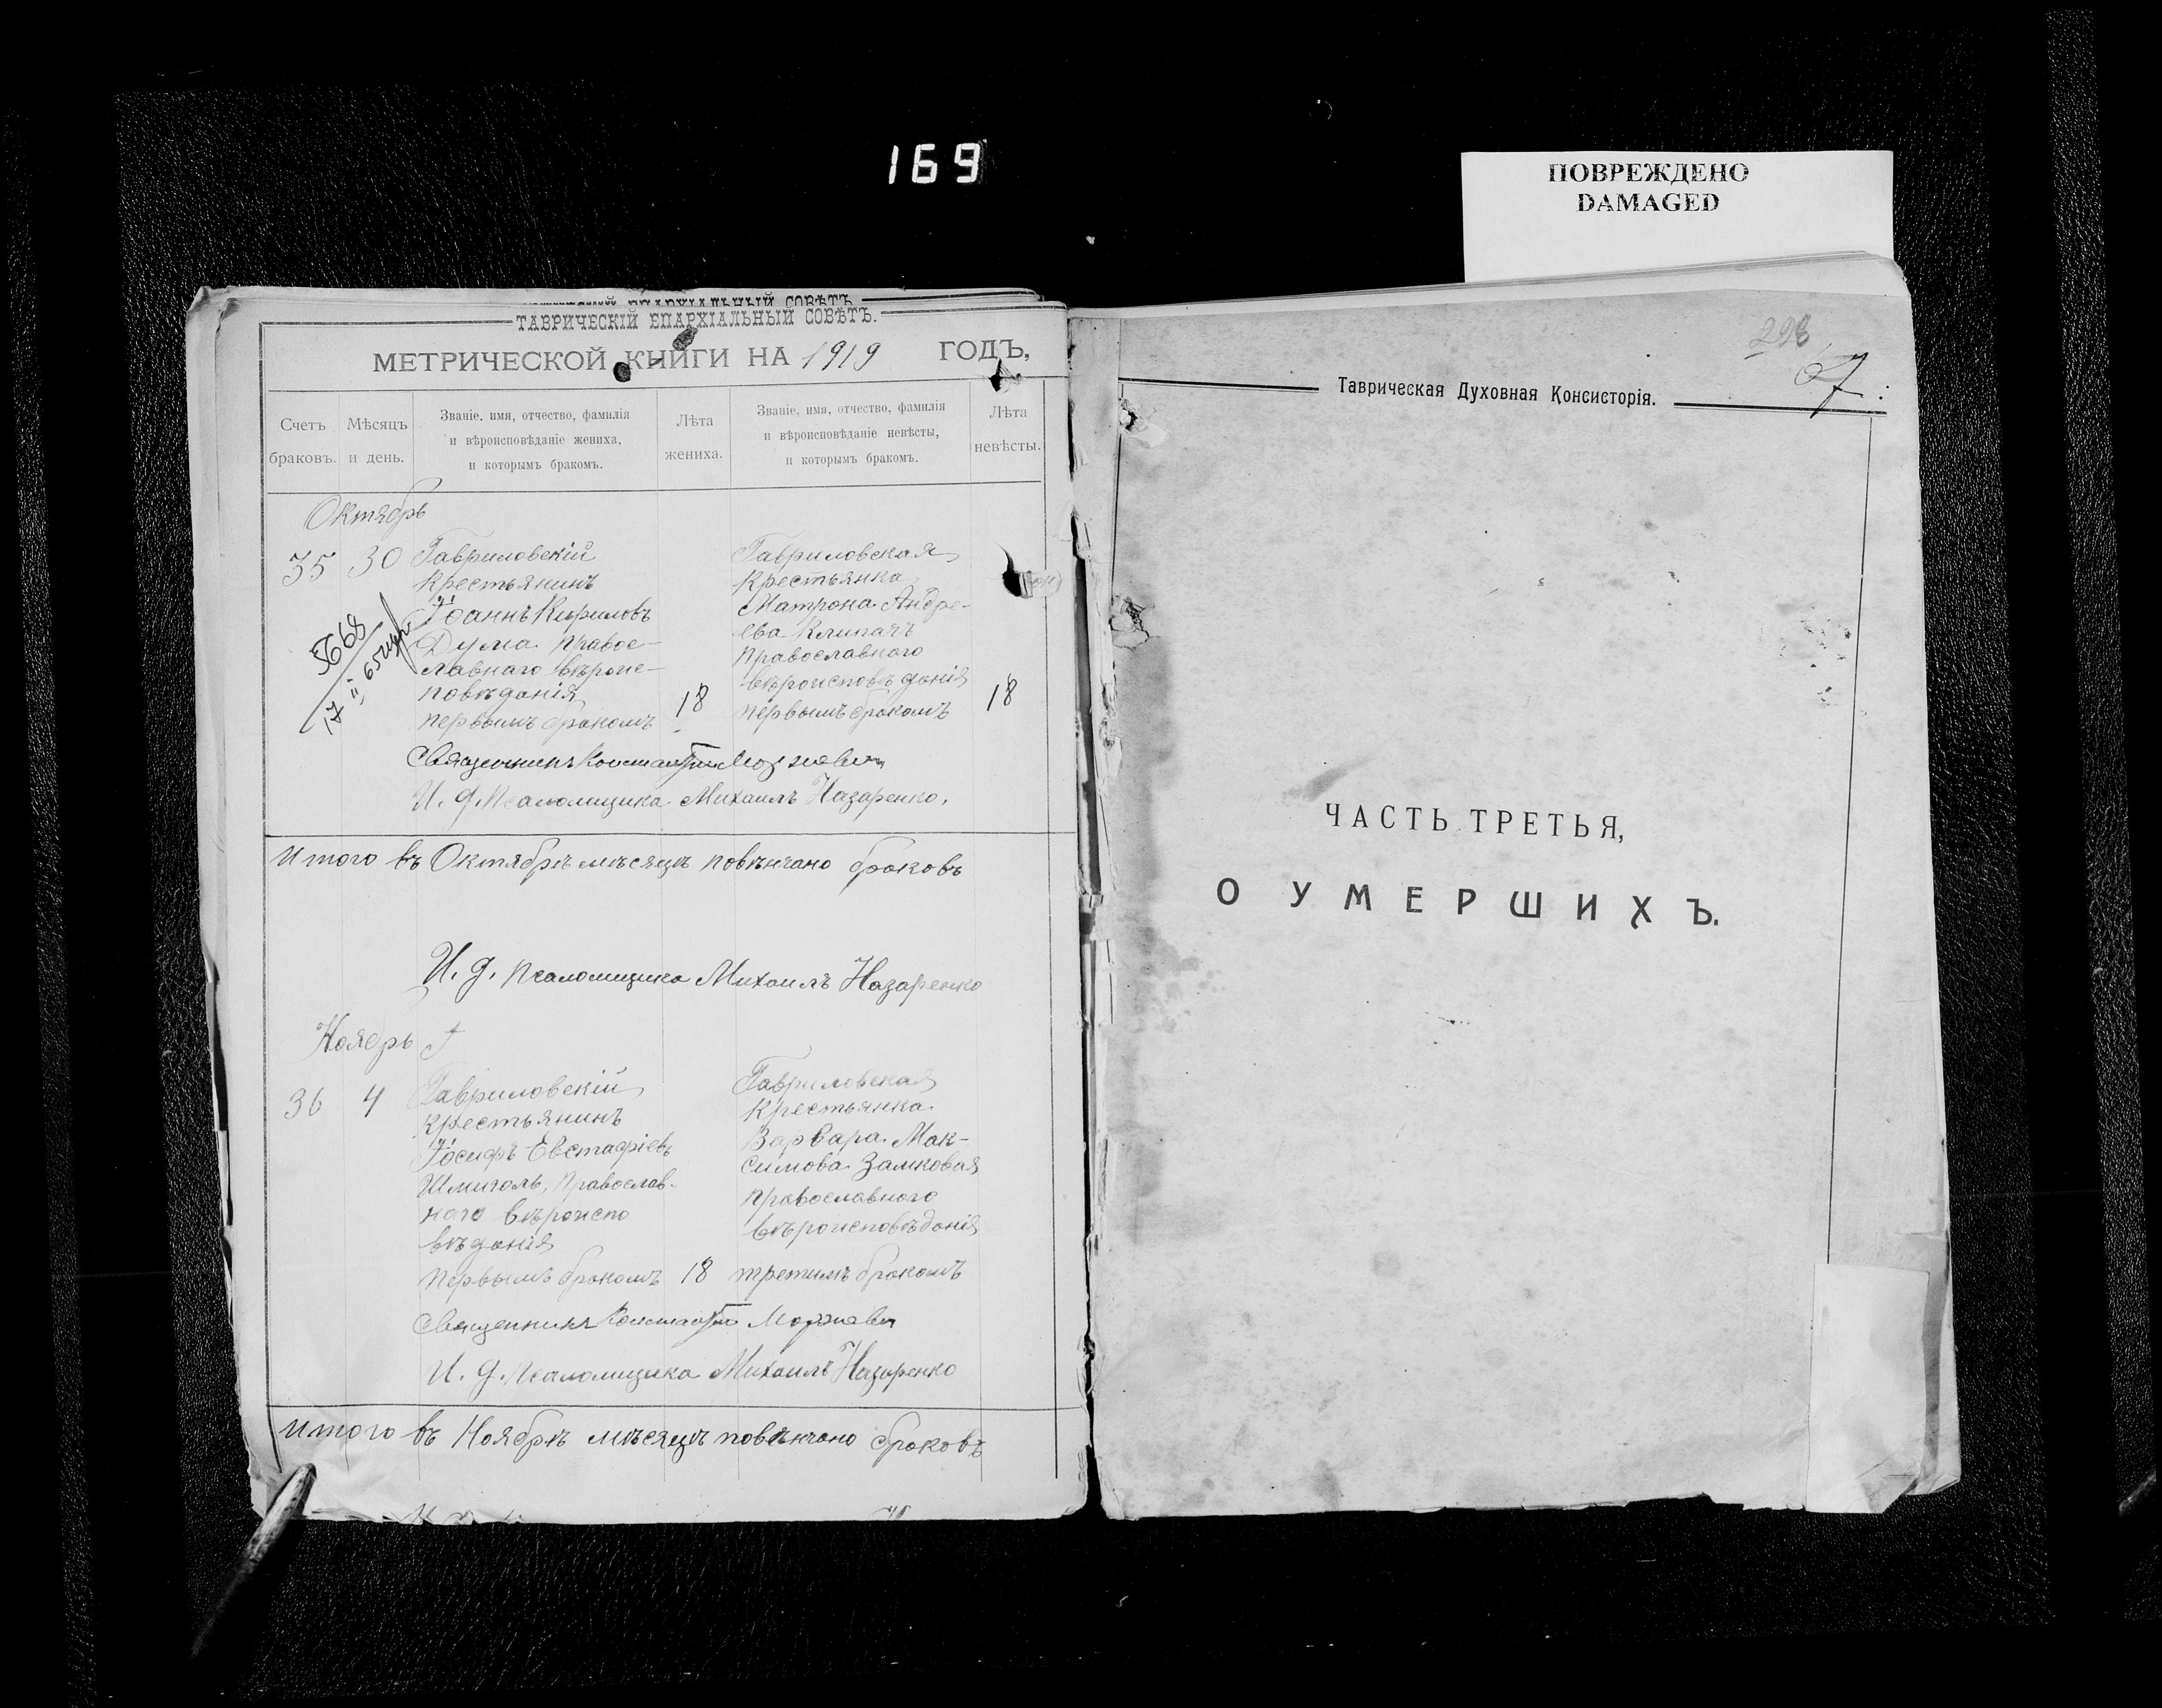 169
ПОВРЕЖДЕНО
DAMAGED
ЕПАРХІАЛЬНЫЙ СОВѢТЪ
ТАВРИЧЕСКІЙ ЕПАРХІАЛЬНЫЙ СОВѢТЪ.
МЕТРИЧЕСКОЙ КНИГИ НА 1919 ГОДЪ,
Счетъ браковъ.
Мѣсяцъ и день.
Званіе, имя, отчество, фамилія
и вѣроисповѣданіе жениха,
и которымъ бракомъ.
Лѣта жениха.
Званіе, имя, отчество, фамилія
и вѣроисповѣданіе невѣсты,
и которымъ бракомъ.
Лѣта невѣсты.
Октябрь
35 30 Гавриловскій
крестьянинъ
Іоаннъ Кириловъ
Дума правос-
лавнаго вѣроис-
повѣданія
первымъ бракомъ 18
5668
Гавриловская
крестьянка
Матрона Андре-
ева Клипачъ
православного
вѣроисповѣданія
первымъ бракомъ 18
Священникъ Константинъ
И. д. Псаломщика Михаилъ Назаренко.
Итого въ Октябрѣ мѣсяцѣ повѣнчано браковъ
И. д. Псаломщика Михаилъ Назаренко
Ноябрь
36 4 Гавриловскій
крестьянинъ
Іосифъ Евстафіевъ
Шмиголь, православ-
наго вѣроиспо
вѣданія
первымъ бракомъ 18
Гаврилвская
крестьянка
Варвара Мак-
симова Замковая
православного
вѣроисповѣданія
третимъ бракомъ
Священникъ Константинъ
И. д. Псаломщика Михаилъ Назаренко
Итого въ Ноябрѣ мѣсяцѣ повѣнчано браковъ
298
Таврическая Духовная Консисторія.
ЧАСТЬ ТРЕТЬЯ,
О УМЕРШИХЪ.